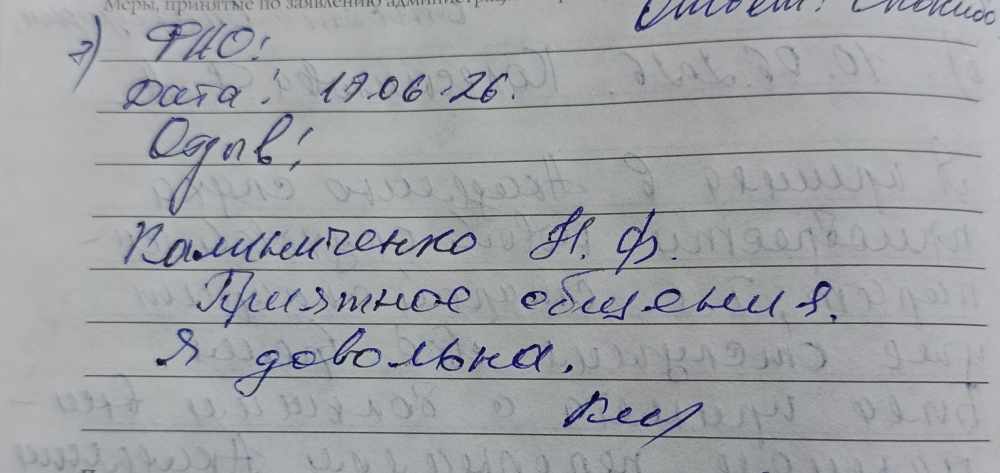 Меры, принятые по заявлению администрац
Ответ: Спасибо
7) ФИО:
Дата: 17.06.26.
Отзыв:
Калиниченко Н. Ф.
Приятное общения.
Я довольна.